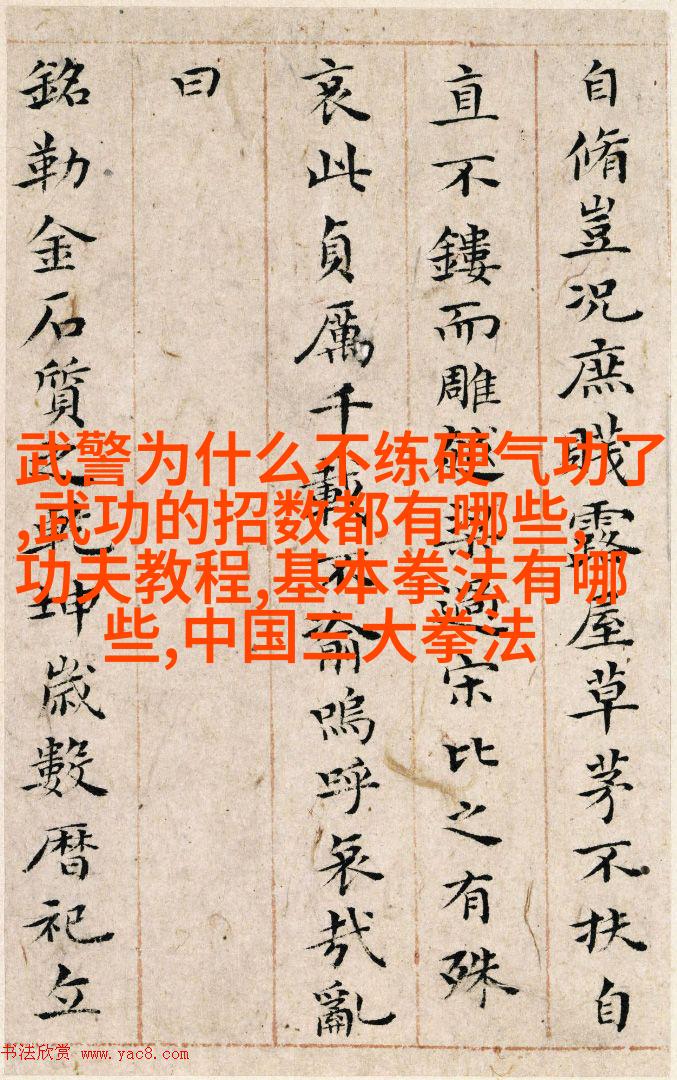 自脩豈况庶賤露屋草茅不扶自
直不鏤而雕越梁過宋比之有殊
哀此貞厲千載不渝嗚呼哀哉亂
曰
銘勒金石質之乾坤歲數曆祀立
武警为什么不练硬气功了
,武功的招数都有哪些,
功夫教程,基本拳法有哪
些,中国三大拳法
书法欣赏 www.yac8.com